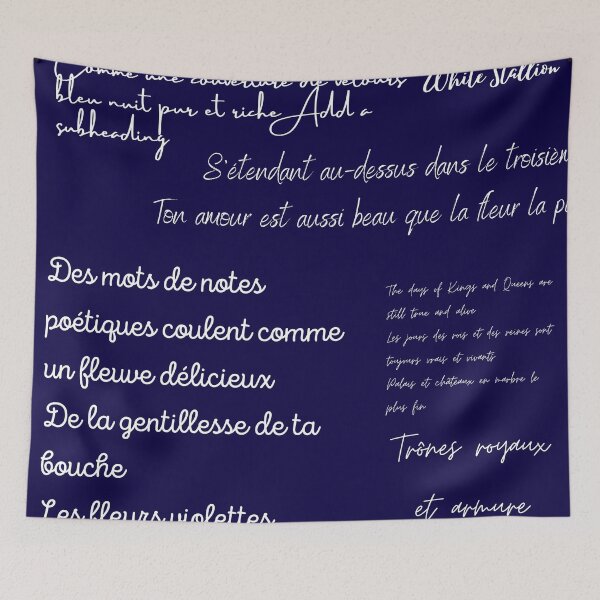 Comme une couverture de velours
White Stallion
bleu nuit pur et riche Add a
subheading
S'étendant au-dessus dans le troisièm
Ton amour est aussi beau que la fleur la p
Des mots de notes
poétiques coulent comme
un fleuve délicieux
De la gentillesse de ta
bouche
Les fleurs violettes
The days of Kings and Queens are
still true and alive
Les jours des rois et des reines sont
toujours vrais et vivants
Palais et châteaux en marbre le
plus fin
Trônes royaux
et armure